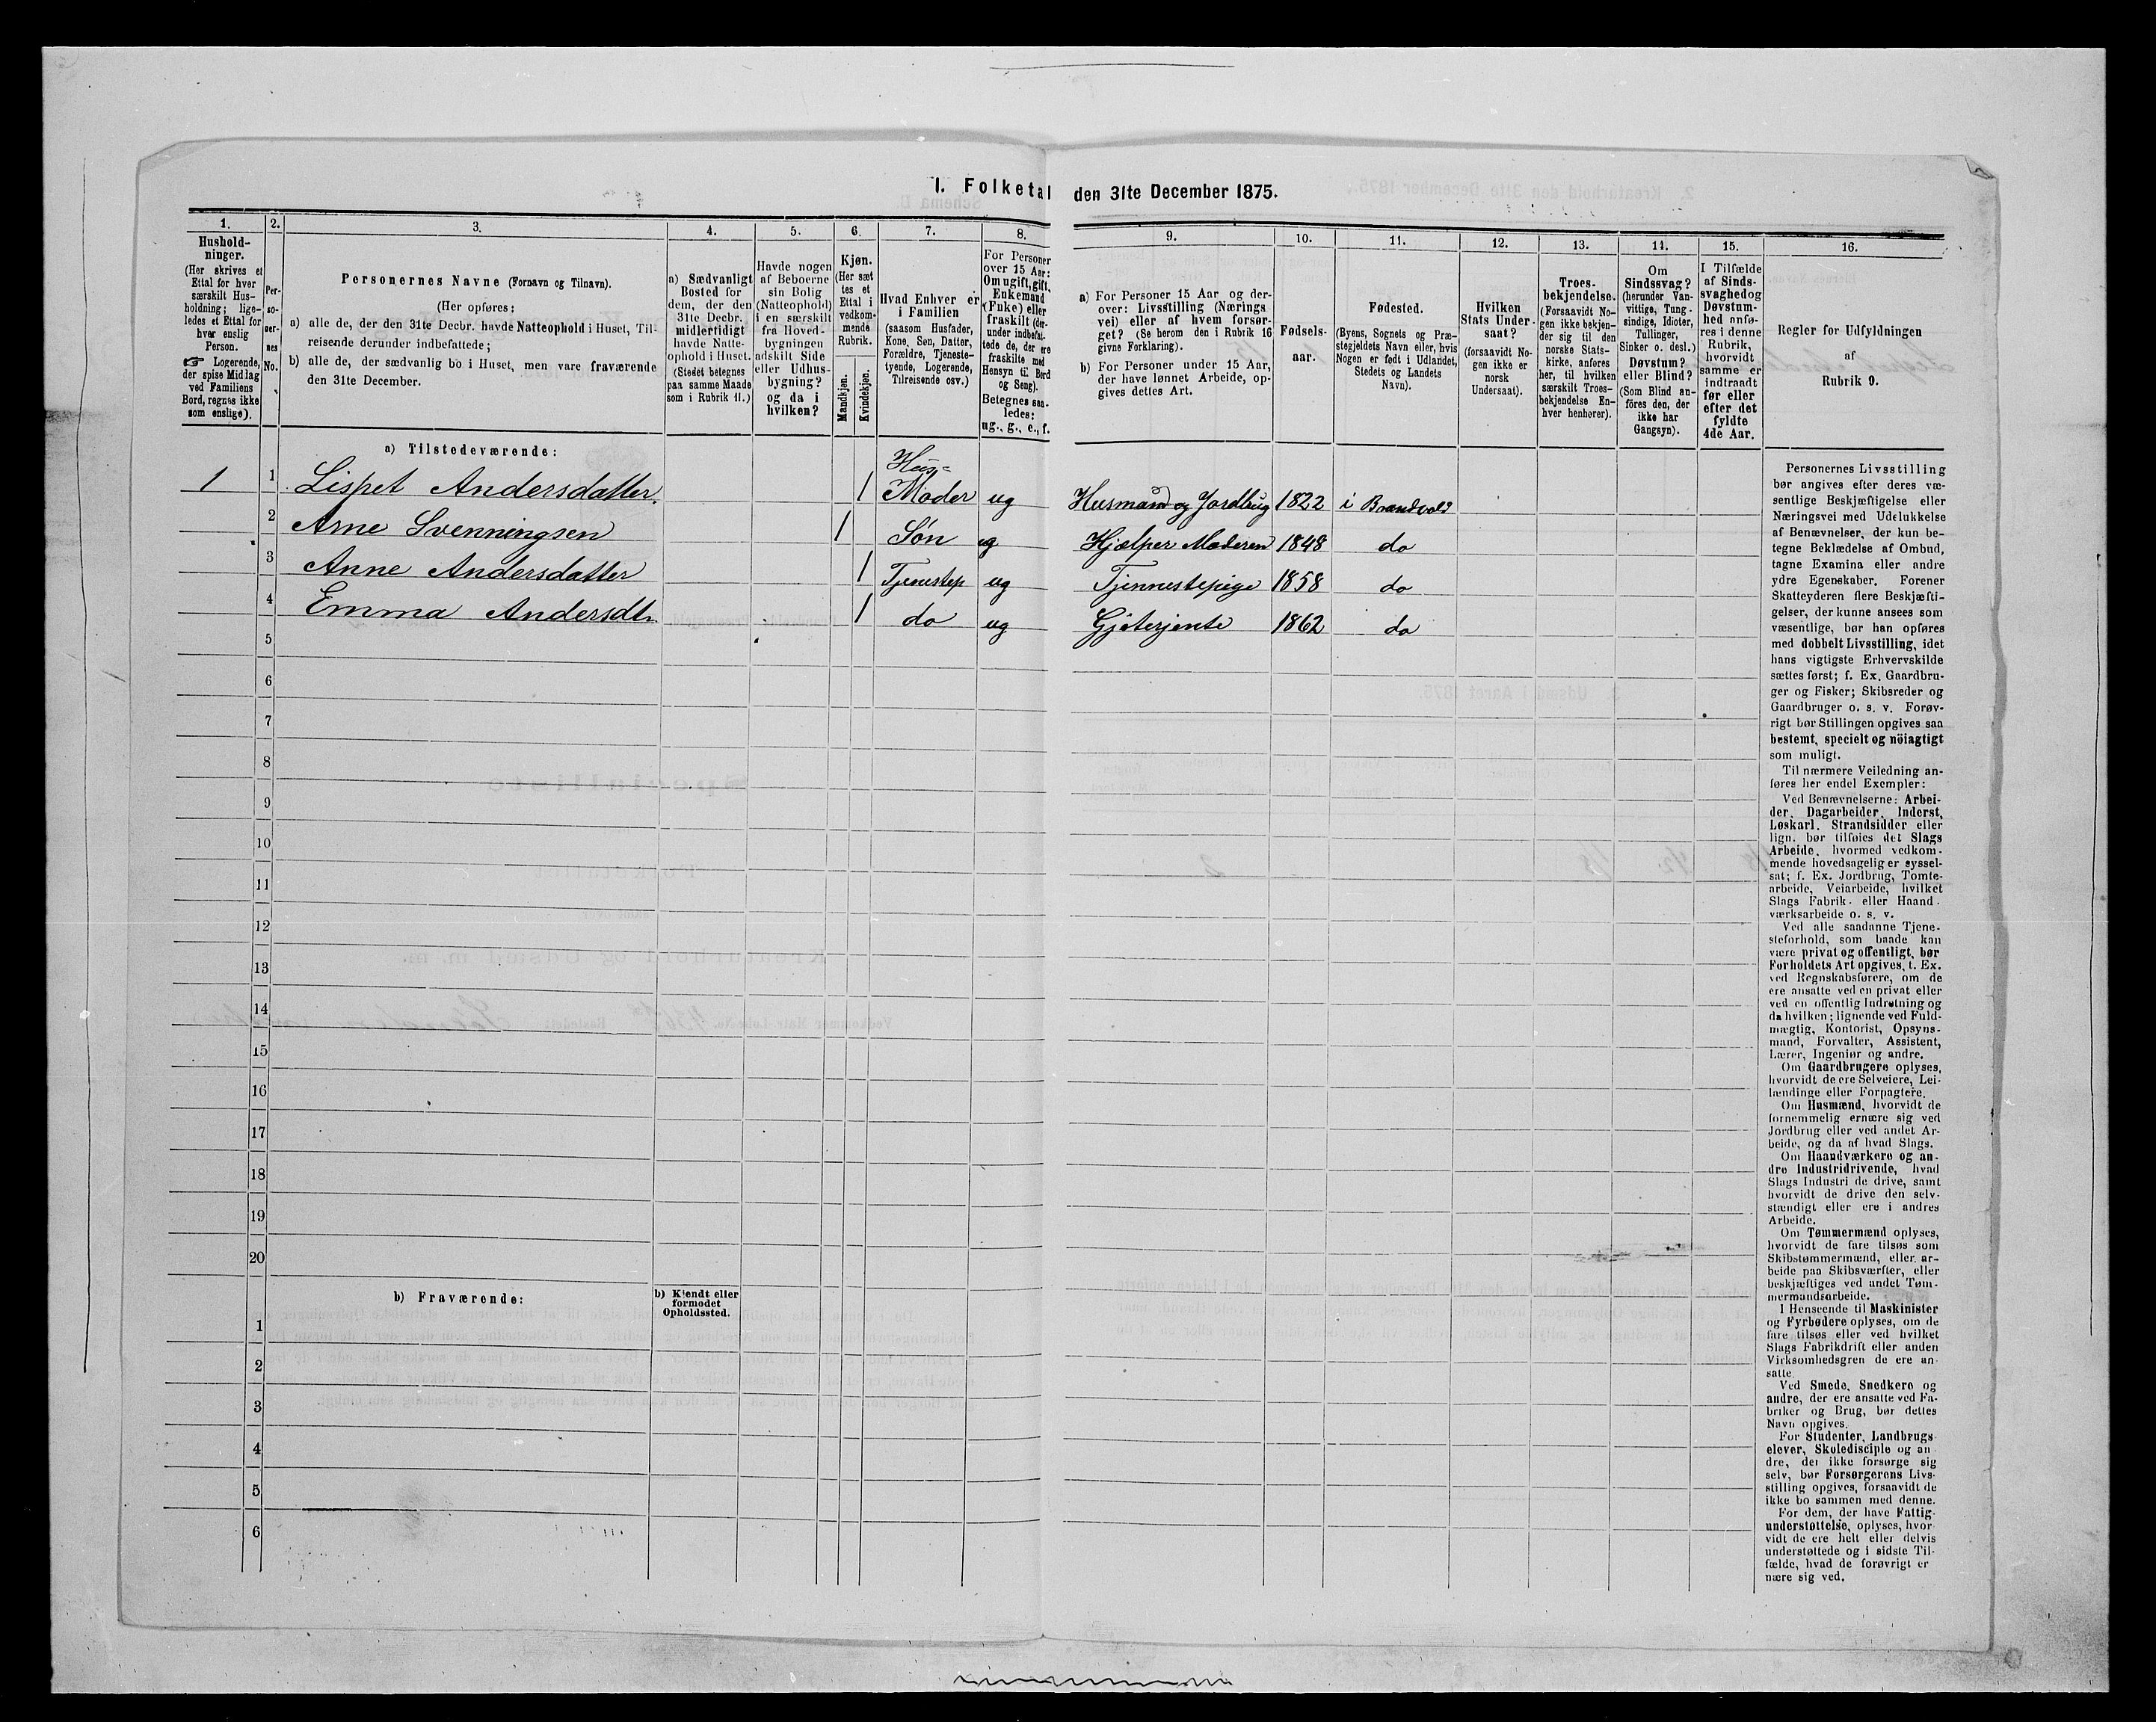 I. Folketal den 31te December 1875.
1. 2. 3. 4. 5. 6. 7. 8. 9. 10. 11. 12. 13. 14. 15. 16.
Hushold-
ninger.
(Her skrives et
Ettal for hver
særskilt Hus-
holdning; lige-
ledes et Ettal for
hver enslig
Person.
☞ Logerende,
der spise Midlag
ved Familiens
Bord, regnes ikke
som enslige).
Per-
so-
ner-
nes
No.
Personernes Navne (Fornavn og Tilnavn).
(Her opføres:
a) alle de, der den 31te Decbr. havde Natteophold i Huset, Til-
reisende derunder indbefattede;
b) alle de, der sædvanlig bo i Huset, men vare fraværende
den 31te December.
a) Sædvanligt
Bosted for
dem, der den
31te Decbr.
midlertidigt
havde Natte-
ophold i Huset.
(Stedet betegnes
paa samme Maade
som i Rubrik 11.)
Havde nogen
af Beboerne
sin Bolig
(Natteophold)
i en særskilt
fra Hoved-
bygningen
adskilt Side
eller Udhus-
bygning?
og da i
hvilken?
Kjøn.
(Her sæt
tes et
Ettal i
vedkom-
mende
Rubrik.
Mandkjøn.
Kvindekjøn.
Hvad Enhver er
i Familien
(saasom Husfader,
Kone, Søn, Datter,
Forældre, Tjeneste-
tyende, Logerende,
Tilreisende osv.)
For Personer
over 15 Aar:
Om ugift, gift,
Enkemand
(Enke) eller
fraskilt (der-
under indbefat-
tede de, der ere
fraskilte med
Hensyn til Bord
og Seng).
Betegnes saa-
ledes:
ug., g., e., f.
a) For Personer 15 Aar og der-
over: Livsstilling (Nærings
vei) eller af hvem forsør-
get? (Se herom den i Rubrik 16
givne Forklaring).
b) For Personer under 15 Aar,
der have lønnet Arbeide, op-
gives dettes Art.
Fødsels-
aar.
Fødested.
(Byens, Sognets og Præ-
stegjeldets Navn eller, hvis
Nogen er født i Udlandet,
Stedets og Landets
Navn).
Hvilken
Stats Under-
saat?
(forsaavidt No-
gen ikke er
norsk
Undersaat).
Troes-
bekjendelse.
(Forsaavidt No-
gen ikke bekjen-
der sig til den
norske Stats-
kirke, anføres
her, til hvilken
særskilt Troes-
bekjendelse En-
hver henhører).
Om
Sindssvag?
(herunder Van-
vittige, Tung-
sindige, Idioter,
Tullinger,
Sinker o. desl.)
Døvstum?
eller Blind?
(Som Blind an-
føres den, der
ikke har
Gangsyn).
I Tilfælde
af Sinds-
svaghed og
Døvstum-
hed anfø-
res i denne
Rubrik,
hvorvidt
samme er
indtraadt
før eller
efter det
fyldte
4de Aar.
Regler for Udfyldningen
af
Rubrik 9.
a) Tilstedeværende:
1 1 Lispet Andersdatter 1 Hus= Moder ug Husmand og Jordbrug 1822 i Brandvold
2 Arne Svenningsen 1 Søn ug Hjælper Moderen 1848 do
3 Anne Andersdatter 1 Tjenestep ug Tjennestepige 1858 do
4 Emma Andersdtr. 1 do ug Gjeterjente 1862 do
5
6
7
8
9
10
11
12
13
14
15
16
17
18
19
20
b) Fraværende:
b) Kjendt eller
formodet
Opholdssted.
1
2
3
4
5
6
Personernes Livsstilling
bør angives efter deres væ-
sentlige Beskjæftigelse eller
Næringsvei med Udelukkelse
af Benævnelser, der kun be-
tegne Beklædelse af Ombud,
tagne Examina eller andre
ydre Egenskaber. Forener
Skatteyderen flere Beskjæfti-
gelser, der kunne ansees som
væsentlige, bør han opføres
med dobbelt Livsstilling, idet
hans vigtigste Erhvervskilde
sættes først; f. Ex. Gaardbru-
ger og Fisker; Skibsreder og
Gaardbruger o. s. v. Forøv-
rigt bør Stillingen opgives saa
bestemt, specielt og nöiagtigt
som muligt.
Til nærmere Veiledning an-
føres her endel Exempler:
Ved Benævnelserne: Arbei-
der, Dagarbeider, Inderst,
Løskarl, Strandsidder eller
lign. bør tilføies det Slags
Arbeide, hvormed vedkom-
mende hovedsagelig er syssel-
sat; f. Ex. Jordbrug, Tomte-
arbeide, Veiarbeide, hvilket
Slags Fabrik- eller Haand-
værksarbeide o. s. v.
Ved alle saadanne Tjene-
steforhold, som baade kan
være privat og offentligt, bør
Forholdets Art opgives, t. Ex.
ved Regnskabsførere, om de
ere ansatte ved en privat eller
ved en offentlig Indretning og
da hvilken; lignende ved Fuld-
mægtig, Kontorist, Opsyns-
mand, Forvalter, Assistent,
Lærer, Ingeniør og andre.
Om Gaardbrugere oplyses,
hvorvidt de ere Selveiere, Lei-
lændinge eller Forpagtere.
Om Husmænd, hvorvidt de
fornemmelig ernære sig ved
Jordbrug eller ved andet Ar-
beide, og da af hvad Slags.
Om Haandværkere og an-
dre Industridrivende, hvad
Slags Industri de drive, samt
hvorvidt de drive den selv-
stændigt eller ere i andres
Arbeide.
Om Tømmermænd oplyses,
hvorvidt de fare tilsøs som
Skibstømmermænd, eller ar-
beide paa Skibsværfter, eller
beskjæftiges ved andet Tøm-
mermandsarbeide.
I Henseende til Maskinister
og Fyrbødere oplyses, om de
fare tilsøs eller ved hvilket
Slags Fabrikdrift eller anden
Virksomhedsgren de ere an-
satte.
Ved Smede, Snedkere og
andre, der ere ansatte ved Fa-
briker og Brug, bør dettes
Navn opgives.
For Studenter, Landbrugs-
elever, Skoledisciple og an-
dre, der ikke forsørge sig
selv, bør Forsørgerens Livs-
stilling opgives, forsaavidt de
ikke bo sammen med denne.
For dem, der have Fattig-
understøttelse, oplyses, hvor-
vidt de ere helt eller delvis
understøttede og i sidste Til-
fælde, hvad de forøvrigt er
nære sig ved.